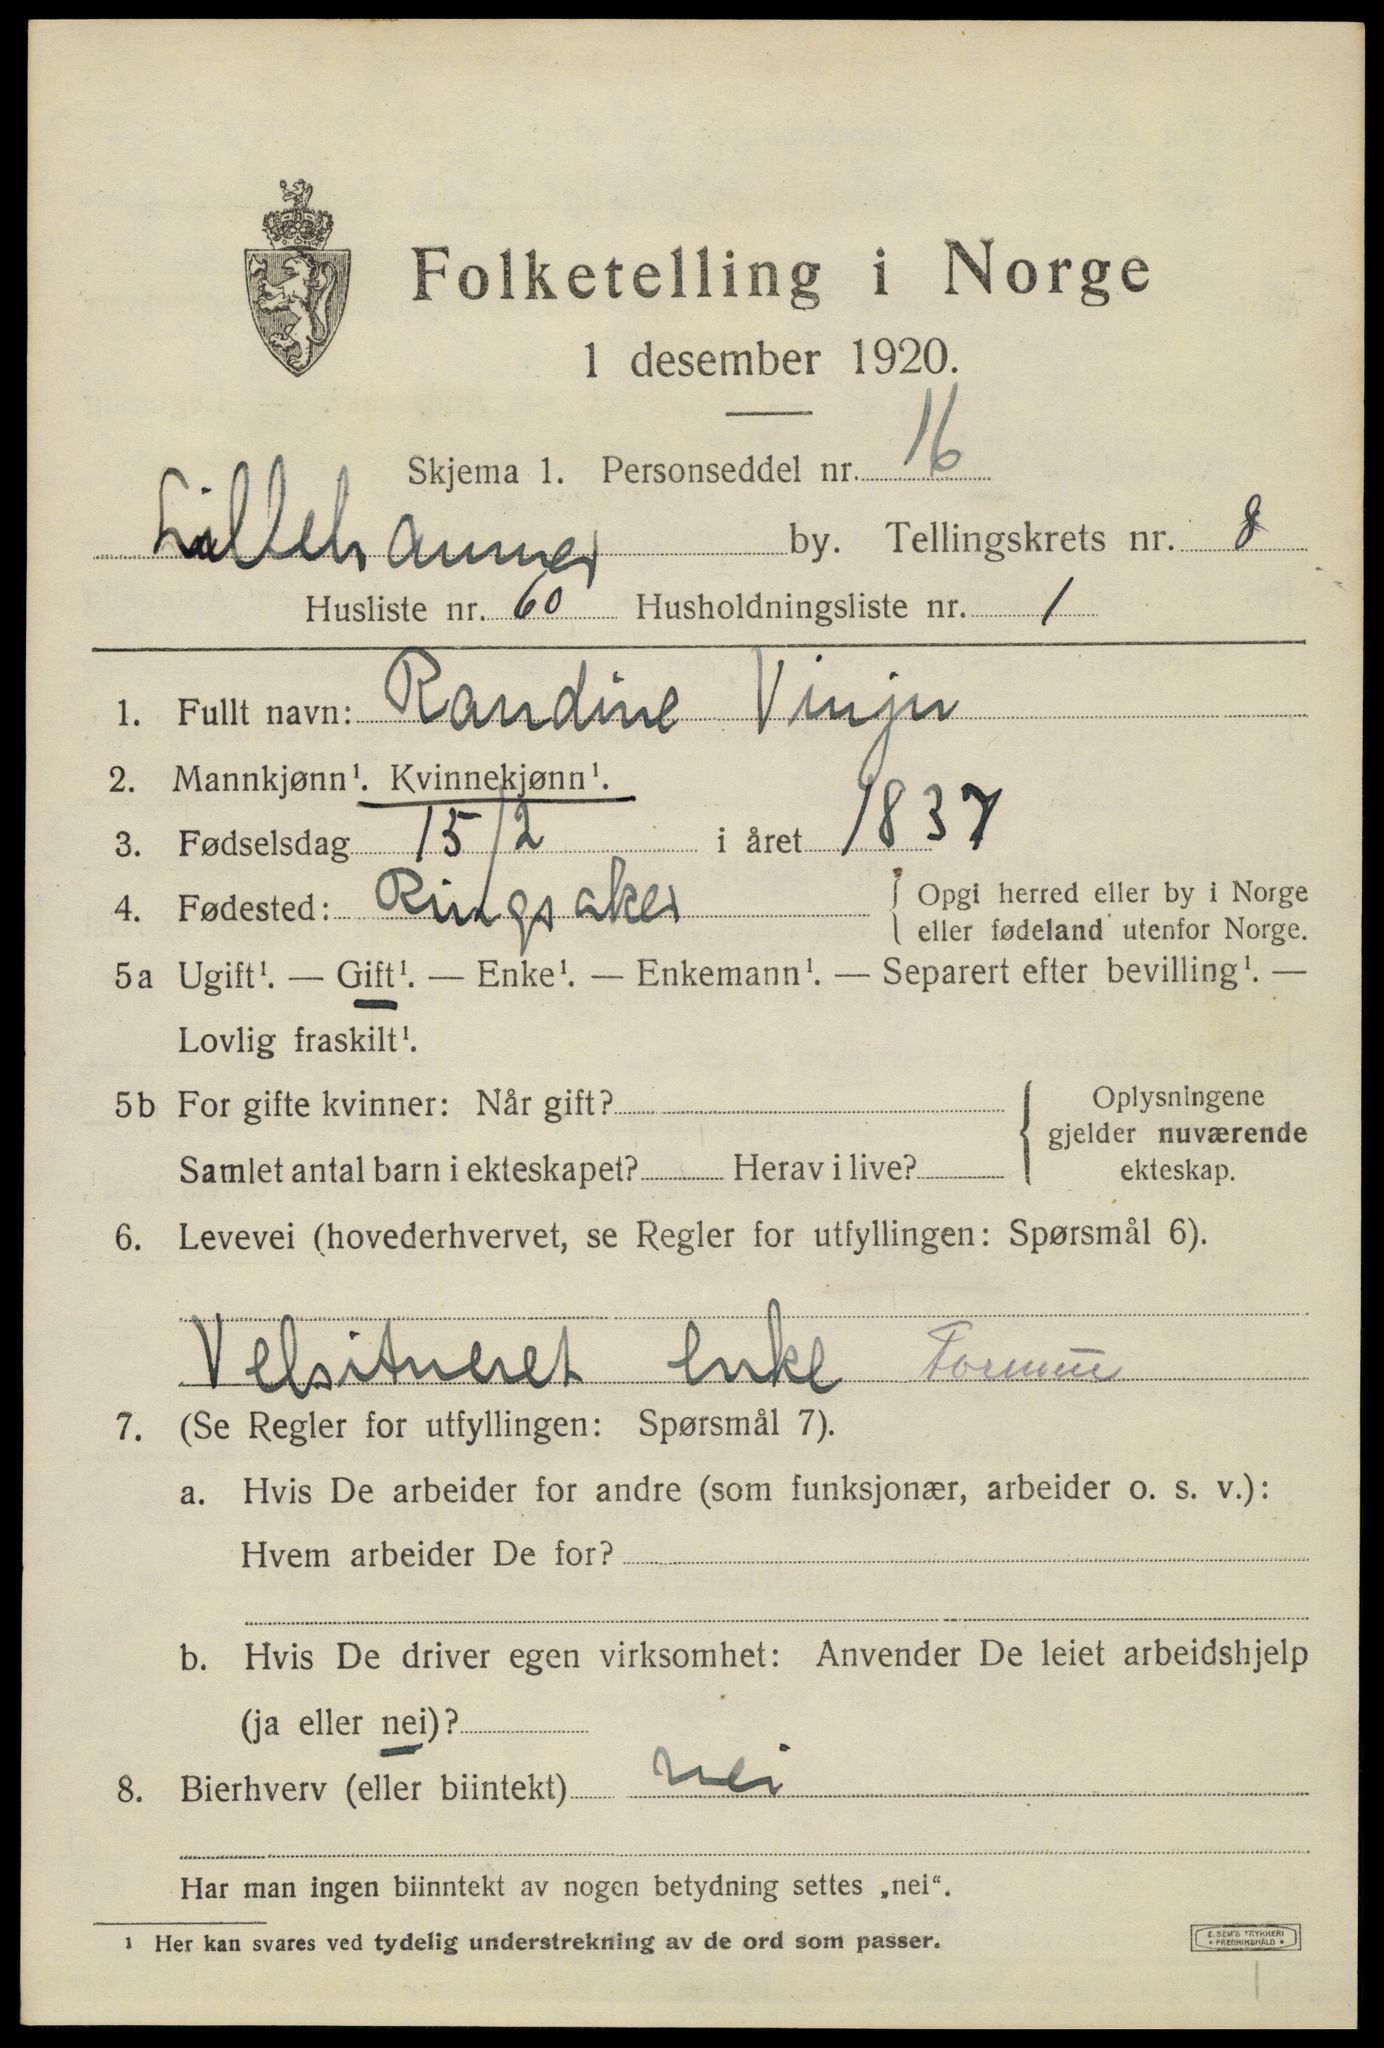 Folketelling i Norge
1 desember 1920.
Skjema 1. Personseddel nr. 16
Lillehammer by. Tellingskrets nr. 8
Husliste nr. 60 Husholdningsliste nr. 1
1. Fullt navn: Randine Vinju
2. Mannkjønn¹. Kvinnekjønn¹.
3. Fødselsdag 15/2 i året 1837
4. Fødested: Ringsaker { Opgi herred eller by i Norge
eller fødeland utenfor Norge.
5a Ugift¹. — Gift¹. — Enke¹. — Enkemann¹. — Separert efter bevilling¹. —
Lovlig fraskilt¹.
5b For gifte kvinner: Når gift?
Samlet antal barn i ekteskapet? Herav i live?
{ Oplysningene
gjelder nuværende
ekteskap.
6. Levevei (hovederhvervet, se Regler for utfyllingen: Spørsmål 6).
Velsitueret enke
7. (Se Regler for utfyllingen: Spørsmål 7).
a. Hvis De arbeider for andre (som funksjonær, arbeider o. s. v.):
Hvem arbeider De for?
b. Hvis De driver egen virksomhet: Anvender De leiet arbeidshjelp
(ja eller nei)?
8. Bierhverv (eller biintekt) nei
Har man ingen biinntekt av nogen betydning settes „nei“.
¹ Her kan svares ved tydelig understrekning av de ord som passer.
E. SEM'S TRYKKERI
* FREDRIKSHALD *